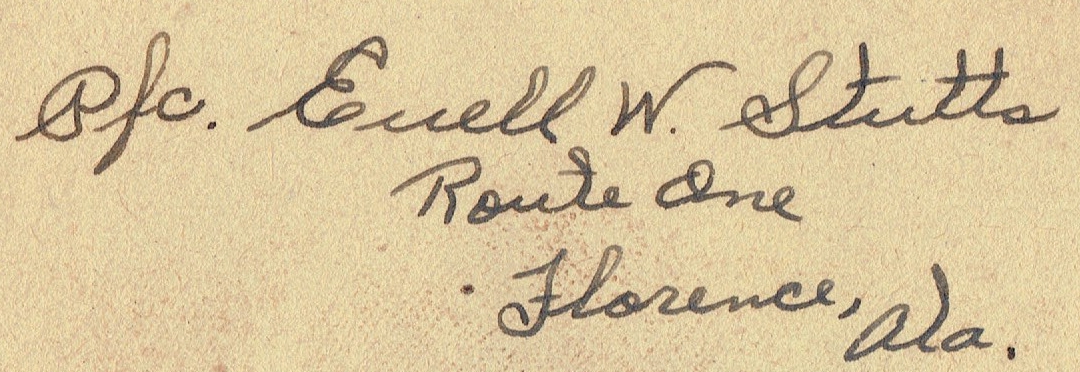 Pfc. Euell W. Stutts
Route One
Florence, Ala.